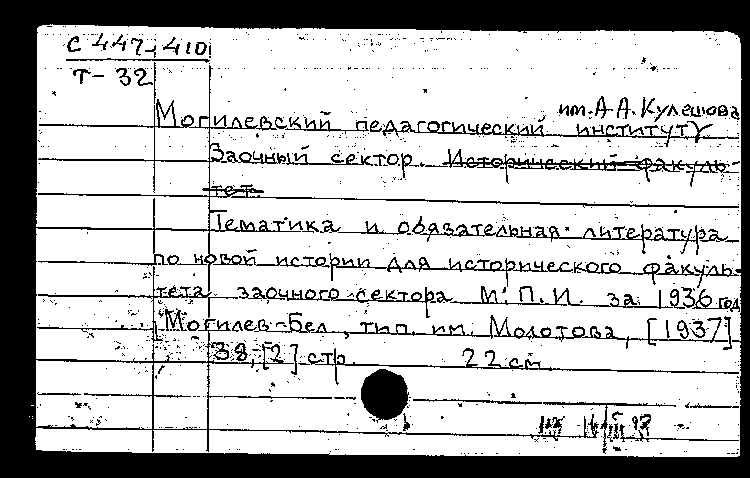 С 447-410
Т-32
им. А.А. Кулешова
Могилевский педагогический институт
Заочный сектор. Исторический факуль-
тет.
Тематика и обязательная литература
по новой истории для исторического факуль-
тета заочного сектора М.П.И. за 1936 год
Могилев-Бел, тип. им. Молотова, [1937]
38, [2] стр. 22 см.